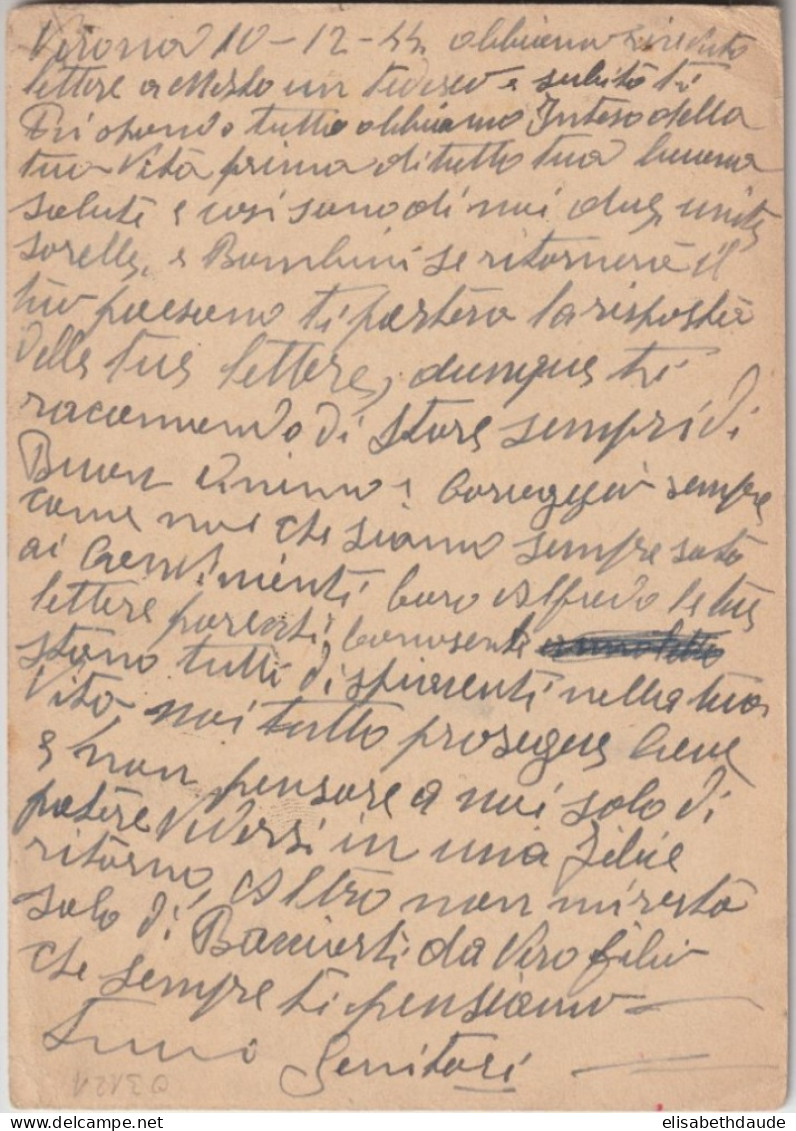 Verona 10-12-44. abbiamo riceuto
lettere a mezo un tedesco e subito ti
rispondo tutto abbiamo Inteso della
tua Vita prima di tutto tua buona
salute e cosi sono di noi due, unite
sorelle, e Bambini se ritornerà il
tuo paesano ti porterà la risposta
della tua lettere, dunque ti
racomando di stare sempri di
Buon Animo e
sempre
come noi che siamo sempre sotto
ai
caro Alfredo le tue
lettere parenti conosente
stano tutti di spiacenti nella tua
Vita, noi tutto prosegue bene
e non pensare a noi solo di
potere Vedersi in una
ritorno, Altro non mi resta
solo di Baciarti da Vero filio
che sempre ti pensiamo
tuoi
Genitori
03121
elisabethdaude